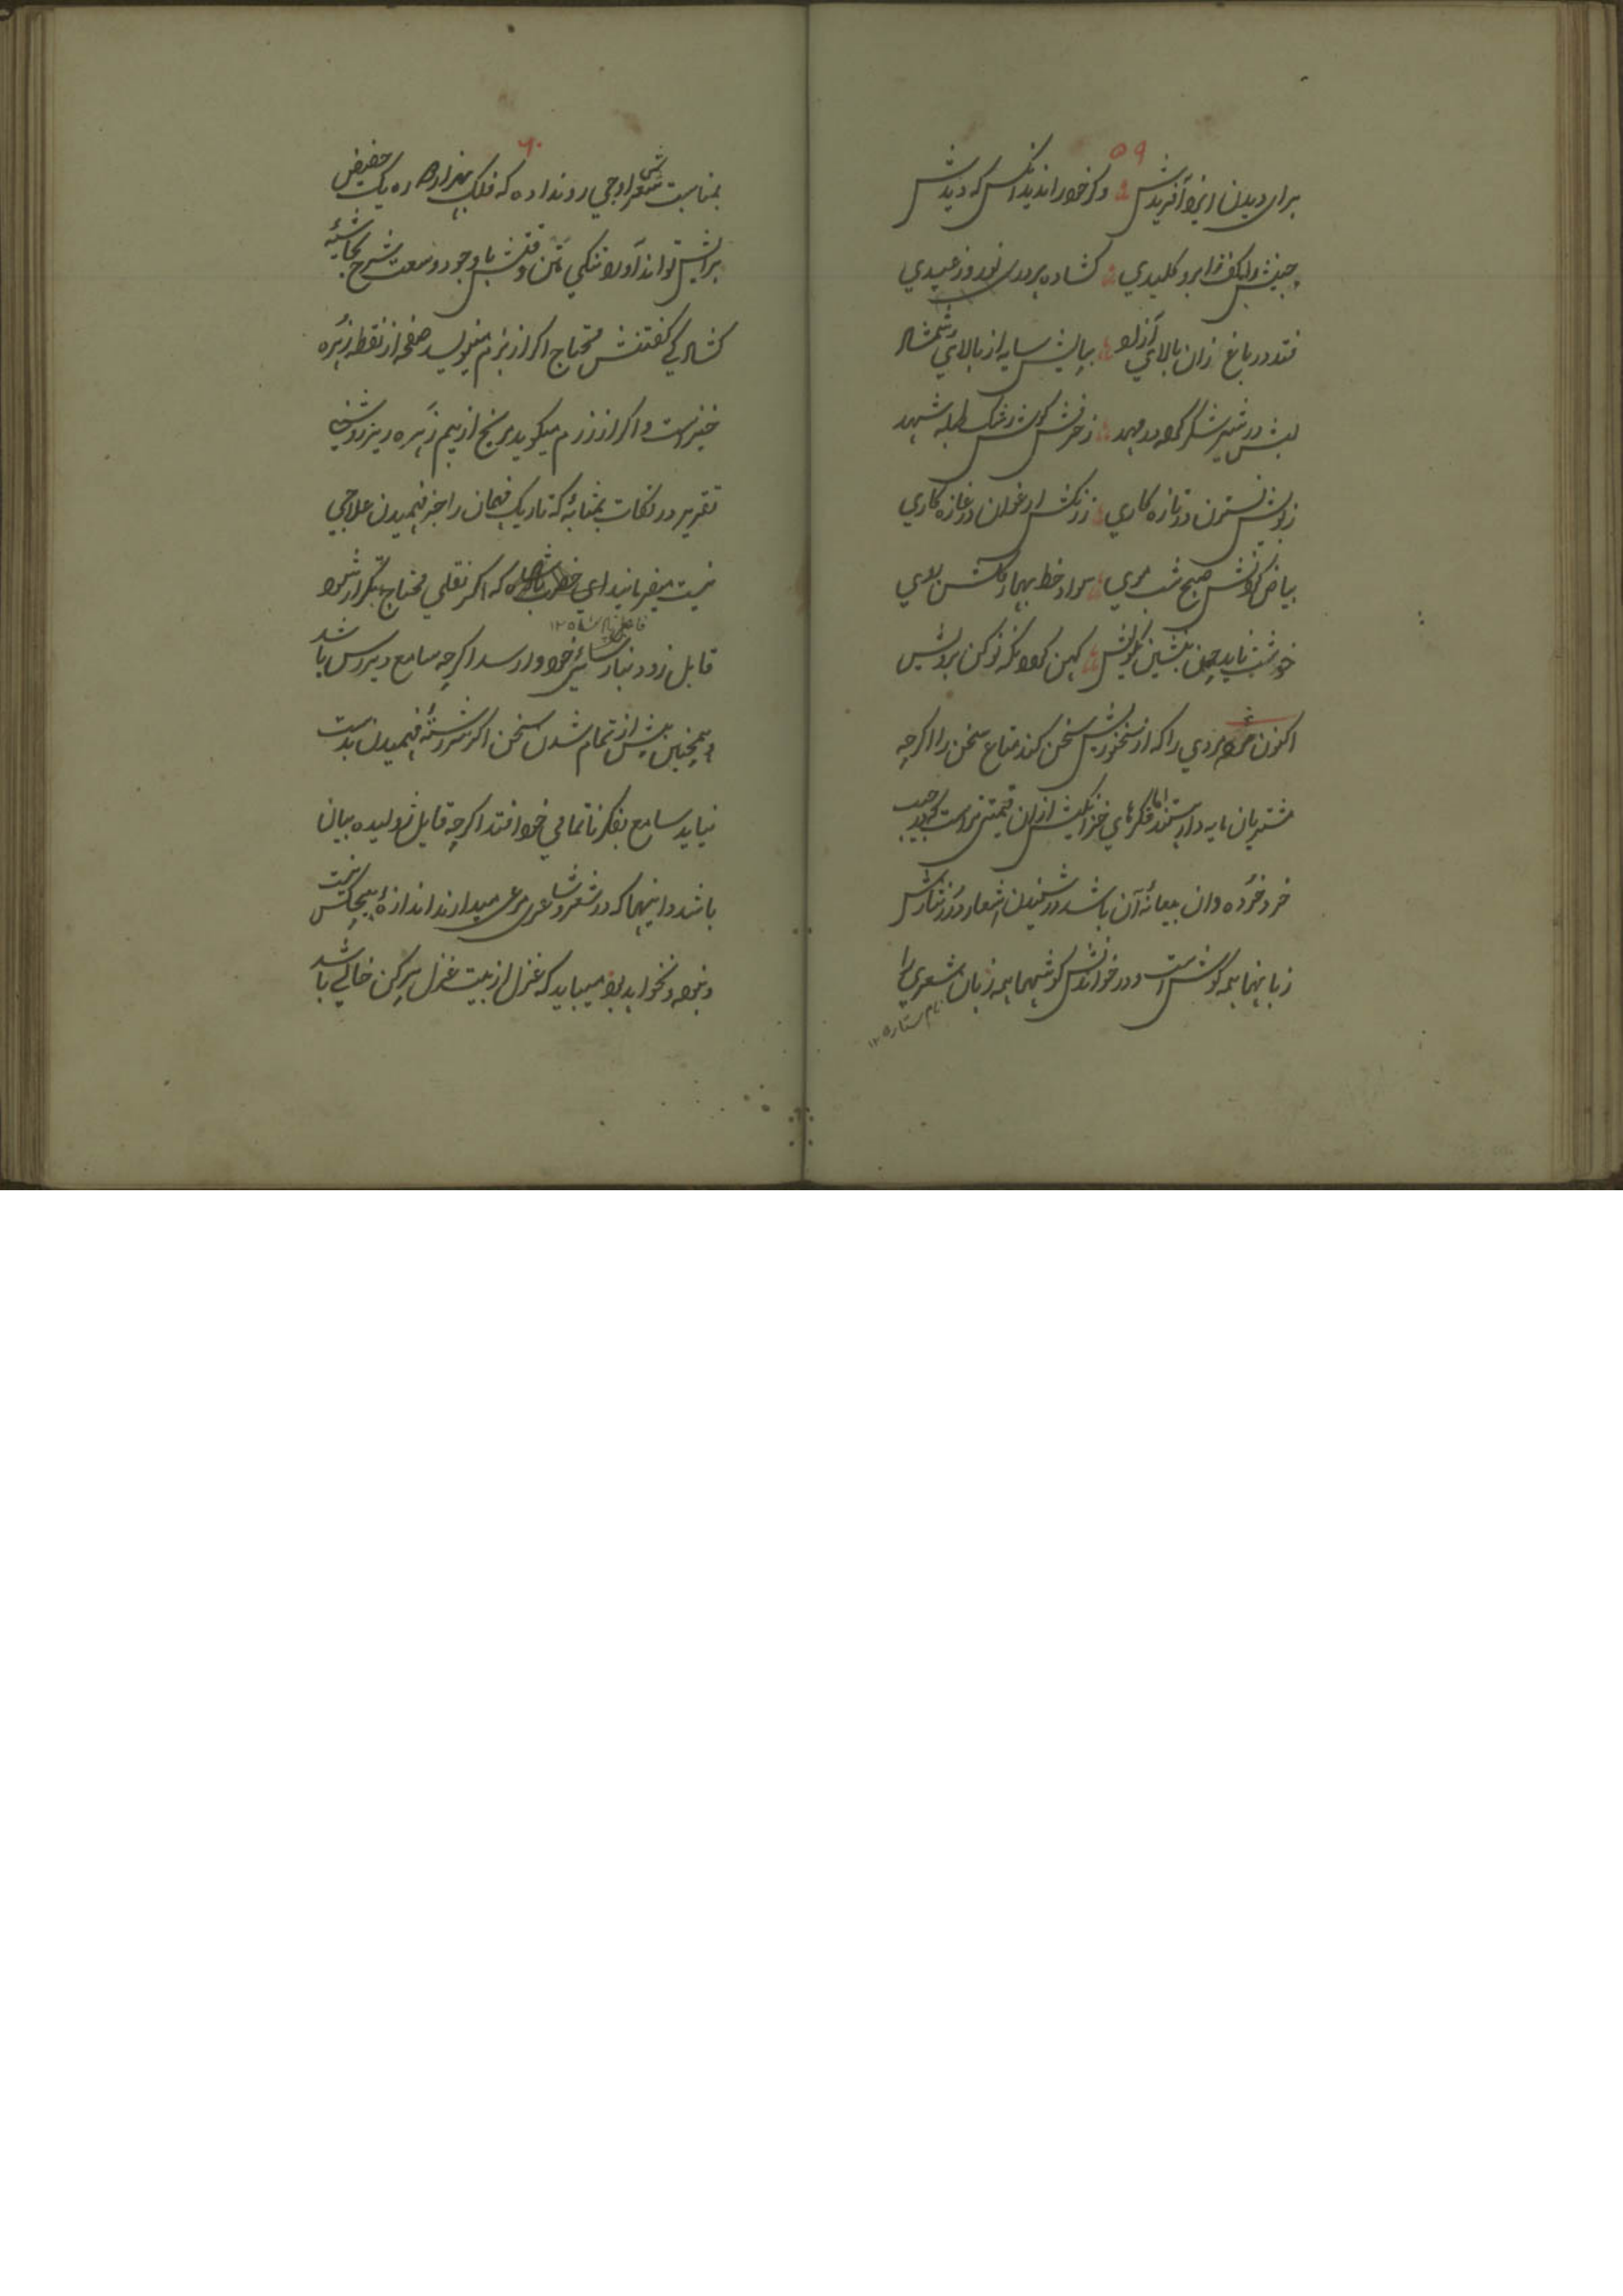 ۵۹
برای دیدن ایزد آفریدش وگر خود را ندید آنکس که دیدش
جبینش کف ابرو کلیدی گشاده بر در نوروز عیدی
فتد در باغ زان بالای آزاد بپایش سایه از بالای شمشاد
لبش در شیر شکر کرده در مهد ز حرفش گوش رشک طبله شهد
ز رویش نسترن در تازه کاری ز رنگش ارغوان در غازه کاری
بیاض گردنش صبح شب موی سواد خط بهار گلشن روی
خوشت ناید چمن بنشین بکویش کهن گردد نگه نو کن برویش
اکنون مردی را که از سخنوریش سخن کند متاع سخن را اگرچه
مشتریان مایه دار هستند اما فکرهای از ان قیمتی تر است که در جیب
خرد خرده دان بیعانه آن باشد در شنیدن اشعار درر نثارش
زبانها همه گوش است و در خواندنش گوشها همه زبان شعری را
نام ستاره ۱۲
۶۰
بمناسبت شعرش اوجی رو نداده که فلک بهزار ره یک حضیض
برایش تواند آورد تنگی متن وقتش با وجود وسعت شرح بحاشیه
کشاد گی گفتنش محتاج اگر از بزم مینویسد صفحه از نقطه زهره
خیز است و اگر از رزم میگوید مریخ از بیم زهره ریز روشنی
تقریر در نکات بمثابه که تاریک فهمان را جز فهمیدن علاجی
نیست میفرمانید ای که اگر نقلی محتاج بتکرار شود
قابل زود بنارسائی خود وارسد اگرچه سامع دیررس باشد
و همچنین پیش از تمام شدن سخن اگر سررشته فهمیدن بدست
نیاید سامع بفکر ناتمامی خود افتد اگرچه قایل ژولیده بیان
باشد و اینها که در شعر و شاعری مرعی میدارند اندازه هیچکس نیست
و نبوده و نخواهد بود میباید که غزل از بیت غزل پرکن خالی باشد